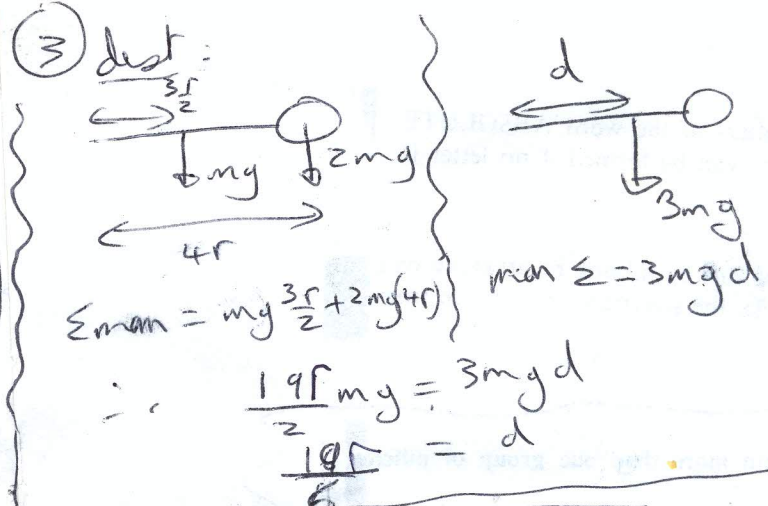 ③ dist:
3r/2
mg
2mg
4r
Σ mom = mg 3r/2 + 2mg(4r)
d
3mg
mom Σ = 3mgd
∴ 19r/2 mg = 3mgd
19r/6 = d